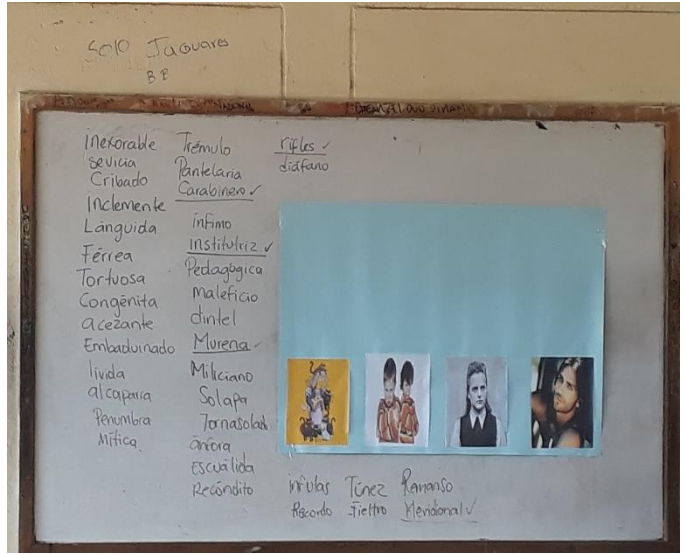 Solo Jaguares
BB
inexorable
sevicia
Cribado
Inclemente
Lánguida
Férrea
Tortuosa
Congénita
acezante
Embaduinado
lívida
alcaparra
Penumbra
Mítica
Trémulo
Pantelaria
Carabinero ✓
ínfimo
institutriz ✓
Pedagógica
maleficio
dintel
Murena ✓
Miliciano
Solapa
Tornasolado
ánfora
Escuálida
Recóndito
rifles ✓
diáfano
ínfulas Túnez Remanso
Recordo Fieltro Meridional ✓